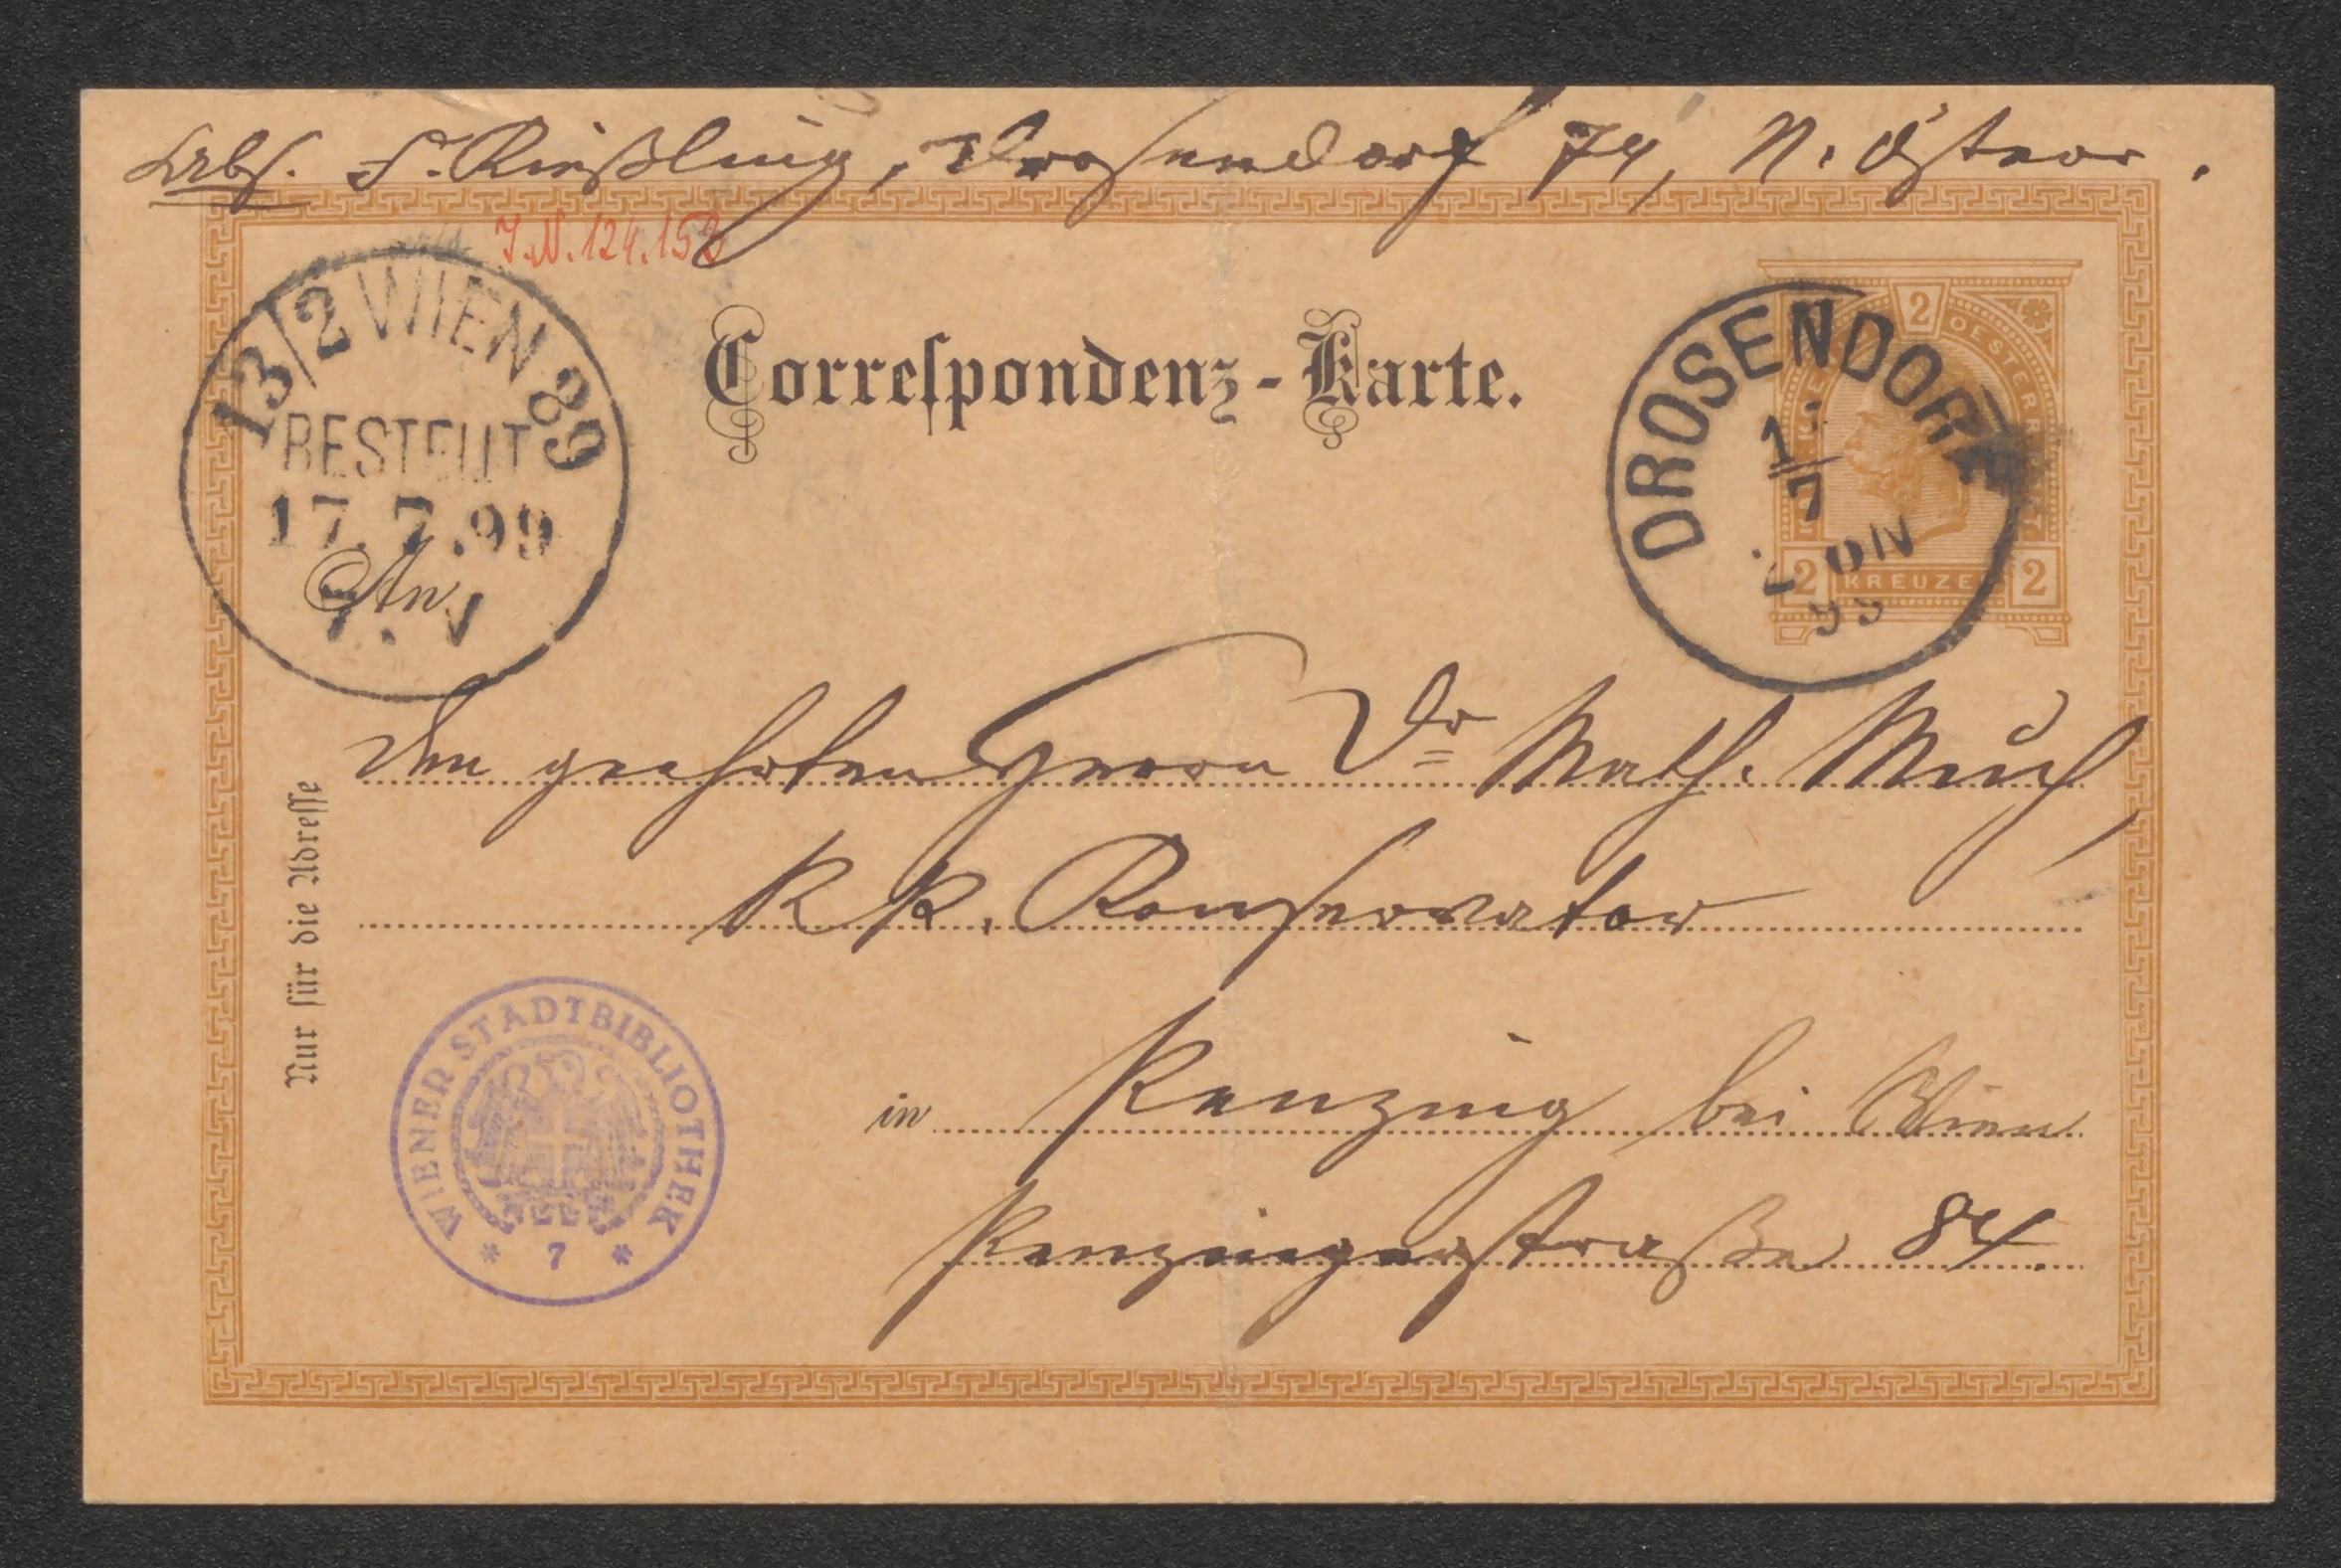 Abs. F. Kießling, Drosendorf 74, N. Österr.
J.N. 124.152
13/2 WIEN 89
BESTELLT
17.7.99
Correspondenz-Karte.
DROSENDORF
7
2 OESTERR
2 KREUZER 2
An
Den geehrten Herrn Dr Math. Much,
k k. Konservator
Nur für die Adresse
in Penzing bei Wien
Penzingerstraße 84.
WIENER STADTBIBLIOTHEK
* 7 *